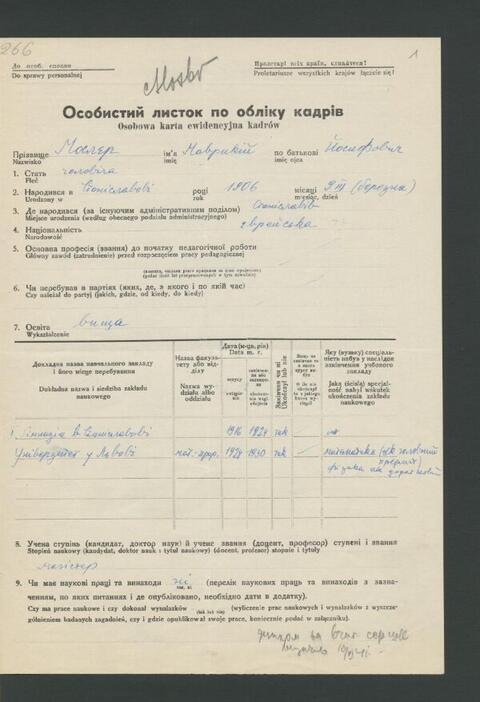 266
До особ. справи
Do sprawy personalnej
Пролетарі всіх країн, єднайтеся!
Proletariusze wszystkich krajów łączcie się!
1
Особистий листок по обліку кадрів
Osobowa karta ewidencyjna kadrów
Прізвище Маллер ім'я Маврикій по батькові Йосифович
Nazwisko imię imię ojca
1. Стать чоловіча
Płeć
2. Народився в Станіславові році 1906 місяці 9/III (березня)
Urodzony w rok miesiąc, dzień
3. Де народився (за існуючим адміністративним поділом) Станіславів
Miejsce urodzenia (według obecnego podziału administracyjnego)
4. Національність єврейська
Narodowość
5. Основна професія (звання) до початку педагогічної роботи
Główny zawód (zatrudnienie) przed rozpoczęciem pracy pedagogicznej
6. Чи перебував в партіях (яких, де, з якого і по якій час)
Czy należał do partyj (jakich, gdzie, od kiedy, do kiedy)
7. Освіта вища
Wykształcenie
Докладна назва навчального закладу і його місце перебування
Dokładna nazwa i siedziba zakładu naukowego
Назва факультету або відділу
Nazwa wydziału albo oddziału
Дата (м-ць, рік)
Data m. r.
вступу
wstąpienia
Закінчив чи ні
Ukończył lub nie
Яку (вузьку) спеціальність набув у наслідок закінчення учбового закладу
Jaką (ścisłą) specjalność nabył wskutek ukończenia zakładu naukowego
1. Гімназія в Станіславові 1916 1924 так
Університет у Львові мат.-прир. 1924 1930 так математика (як головний предмет) фізика як додатковий
8. Учена ступінь (кандидат, доктор наук) й учене звання (доцент, професор) ступені і звання
Stopień naukowy (kandydat, doktor nauk i tytuł naukowy) (docent, profesor) stopnie i tytuły
магістер
9. Чи має наукові праці та винаходи ні (перелік наукових праць та винаходів з зазначенням,
так, ні
по яких питаннях і де опубліковано, необхідно дати в додатку).
Czy ma prace naukowe i czy dokonał wynalazków (tak lub nie) (wyliczenie prac naukowych i wynalazków z wyszczególnieniem
badanych zagadnień, czy i gdzie opublikował swoje prace, koniecznie podać w załączniku).